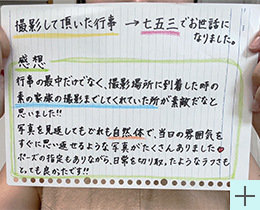 撮影して頂いた行事 → 七五三でお世話に
なりました。
感想
行事の最中だけでなく、撮影場所に到着した時の
素の家族の撮影までしてくれていた所が素敵だなと
思いました!!
写真を見返してもどれも自然体で、当日の雰囲気を
すぐに思い返せるような写真がたくさんありました♥
ポーズの指定もありながら、日常を切り取ったようなラフさも
とっても良かったです!!